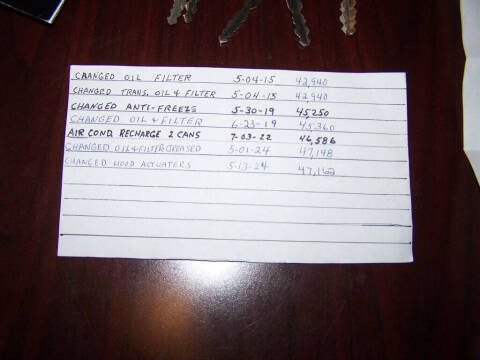 CHANGED OIL FILTER 5-04-15 42,940
CHANGED TRANS, OIL & FILTER 5-04-15 42,940
CHANGED ANTI-FREEZE 5-30-19 45250
CHANGED OIL & FILTER 6-23-19 45360
AIR COND. RECHARGE 2 CANS 7-03-22 46,586
CHANGED OIL & FILTER GREASED 5-01-24 47,148
CHANGED HOOD ACTUATERS 5-13-24 47,162